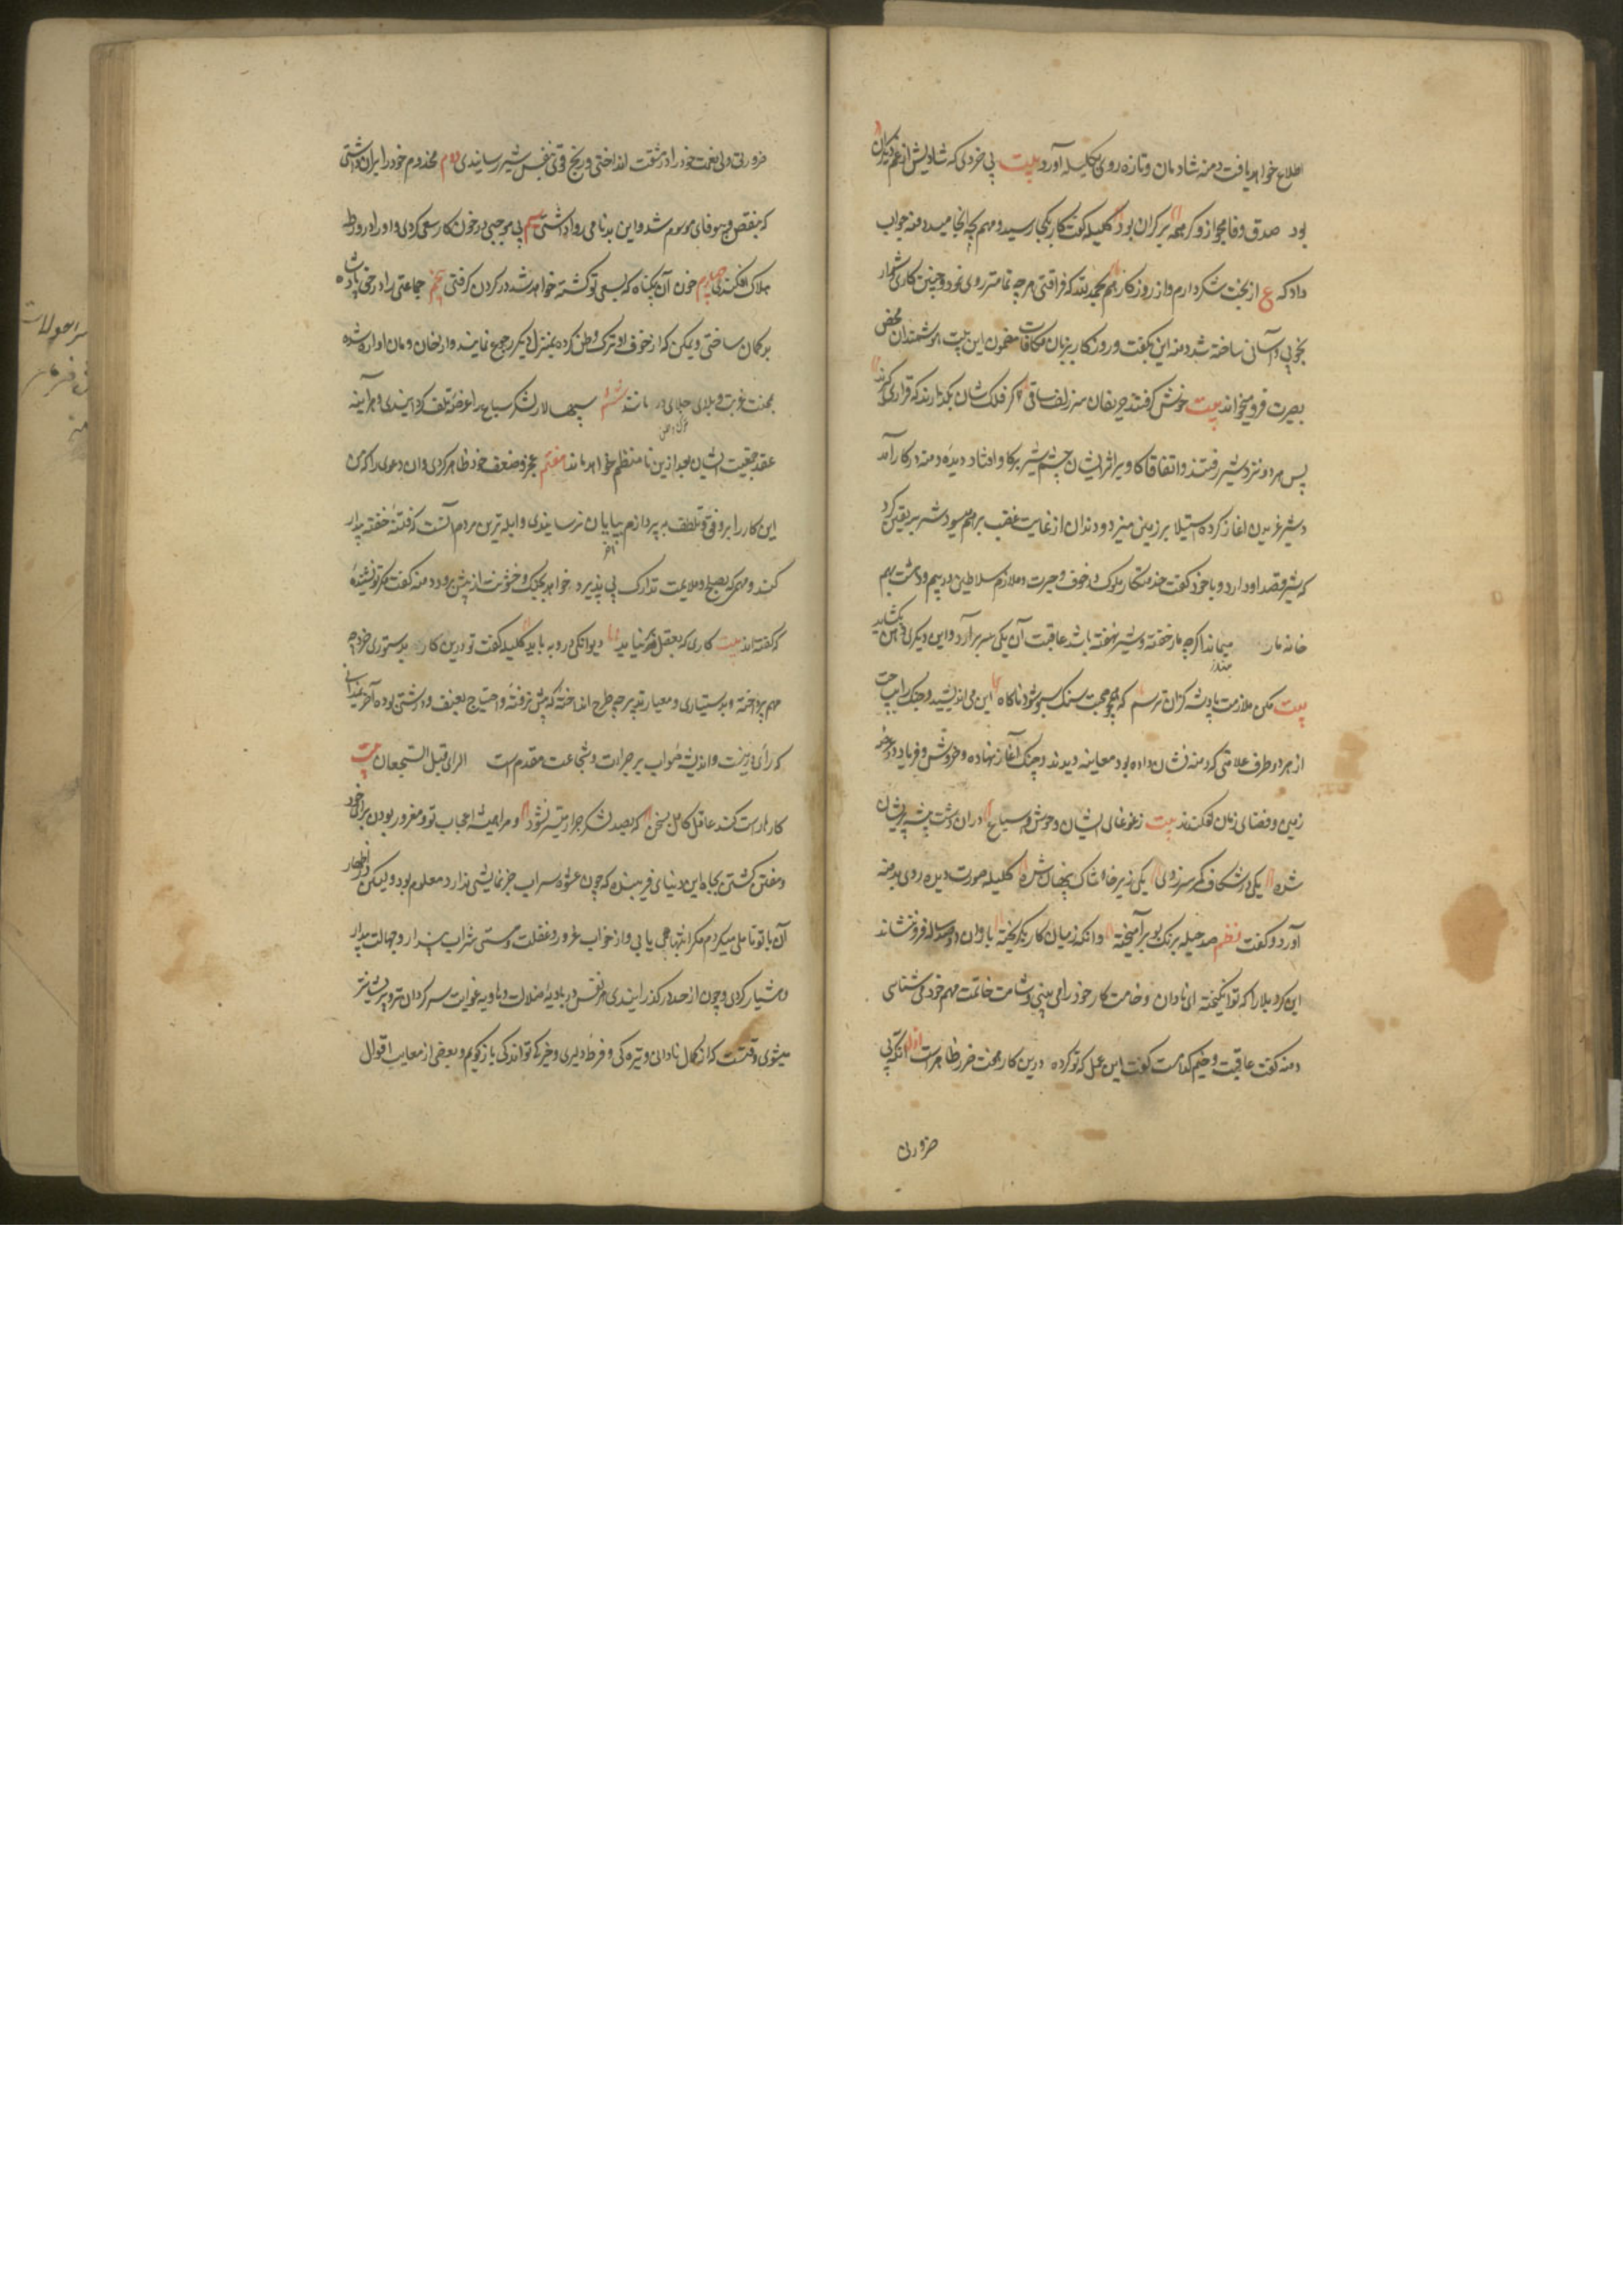 اطلاع خواهد یافت دمنه شادمان و تازه روی بکلیله آورد بیت بی خردی که شادیش از غم دیکران
بود صدق و وفا مجو ازو کرمهمه بر کران بود کلیله کفت کار بکجا رسید و مهم بچه انجامید دمنه جواب
داد که ع از بخت شکر دارم و از روزکار هم بحمد لله که فراغتی هر چه تمامتر روی نمود و چنین کاری دشوار
بخوبی و آسانی ساخته شد دمنه این بکفت و روزکار بزبان مکافات مضمون این بیت بر هوشمندان محض
بصیرت فرو میخواند بیت خوش کرفتند حریفان سر زلف ساقی کر فلک شان بکذارند که قراری کیرند
پس هر دو نزد شیر رفتند و اتفاقا کاو بر اثر ایشان چشم شیر بر کاو افتاد دیده دمنه در کار آمد
و شیر غریدن اغاز کرده استیلا بر زمین میزد و دندان از غایت غضب بر هم میسود شنزبه یقین کرد
که شیر قصد او دارد و با خود کفت خدمتکار ملوک در خوف و حیرت و ملازم سلاطین در بیم و دهشت بهم
خانه مار میماند اکرچه مار خفته و شیر نهفته باشد عاقبت آن یکی سر بر آرد و این دیکری دهن بکشاید
بیت مکن ملازمت پادشه کزان ترسم که همچو صحبت سنک و سبو شود ناکاه این می اندیشید و جنک را میساخت
از هر دو طرف علامتی که دمنه نشان داده بود معاینه دیدند و جنک آغاز نهاده و خروش و فریاد در
زمین و فضای زمان افکندند بیت ز غوغای ایشان وحوش و سباع دران دشت و بیشه پریشان
شده یکی در شکاف کمر سر زده یکی زیر خاشاک پنهان شده کلیله صورت دیده روی بدمنه
آورد و کفت نظم صد حیله برنک و بو بر آمیخته وانکه ز میان کار بکریخته باران دو صد ساله فرو ننشاند
این کرد بلا را که تو انکیخته ای نادان وخامت کار خود را می بینی و شامت خاتمت مهم خود می شناسی
دمنه کفت عاقبت وخیم کدامست کفت این عمل که تو کرده درین کار هفت ضرر ظاهر است اول انکه بی
ضرورتی
ضرورتی ولی نعمت خود را در مشقت انداختی و رنج قوی بنفس شیر رسانیدی دوم مخدوم خود را بران داشتی
که بنقض و بیوفایی موسوم شد و این بدنامی روا داشتی سیم بی موجبی در خون کاو سعی کردی و او را در ورطه
هلاک افکندی چهارم خون آن بیکناه که بسعی تو کشته خواهد شد در کردن کرفتی پنجم جماعتی را در حق پادشاه
بد کمان ساختی و یمکن که از خوف او ترک وطن کرده بمنزل دیکر رجوع نمایند و از خان و مان اواره شده
بمحنت غربت و بلای جلای در مانند ششم سپهسالار لشکر سباع را عرضه تلف کردانیدی و هر آینه
عقد جمعیت ایشان بعد ازین نا منتظم خواهد ماند هفتم عجز و ضعف خود ظاهر کردی و ان دعوی را که من
این کار را برفق و تلطف به پردازم بپایان نرسانیدی و ابله ترین مردم آنست که فتنه خفته بیدار
کند و مهمی که بصلح و ملایمت تدارک پذیرد خواهد بجنک و خشونت از پیش برد دمنه کفت مکر تو نشنیده
که کفته اند بیت کاری که بعقل در نیاید دیوانکی درو به باید کلیله کفت تو درین کار بدستوری خرد چه
مهم پرداخته و بدستیاری و معیار تدبیر چه طرح انداخته که پیش نرفته و احتیاج بعنف و درشتی بوده آخر نمیدانی
که رای زینت و اندیشه صواب بر جرات و شجاعت مقدم است الرای قبل الشجعان بیت
کار راست کند عاقل کامل بسخن که بصد لشکر جرار میسر نشود و مرا همیشه اعجاب تو و مغرور بودن برای خود
و مفتن کشتن بجاه این دنیای فریبنده که چون عشوه سراب جز نمایشی ندارد معلوم بود ولیکن در اظهار
آن با تو تاملی میکردم مکر انتباهی یابی و از خواب غرور و غفلت و مستی شراب پندار و جهالت بیدار
و هشیار کردی و چون از حد در کذرانیدی و هر نفس در بادیه ضلالت و هاویه غوایت سر کردان تر و پریشانتر
میشوی وقتست که از کمال نادانی و تیره کی و فرط دلیری و خیره کی تو اندکی باز کویم و بعضی از معایب اقوال